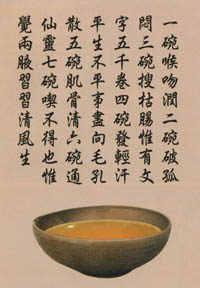 一碗喉吻潤二碗破孤
悶三碗搜枯腸惟有文
字五千卷四碗發輕汗
平生不平事盡向毛孔
散五碗肌骨清六碗通
仙靈七碗喫不得也惟
覺兩腋習習清風生